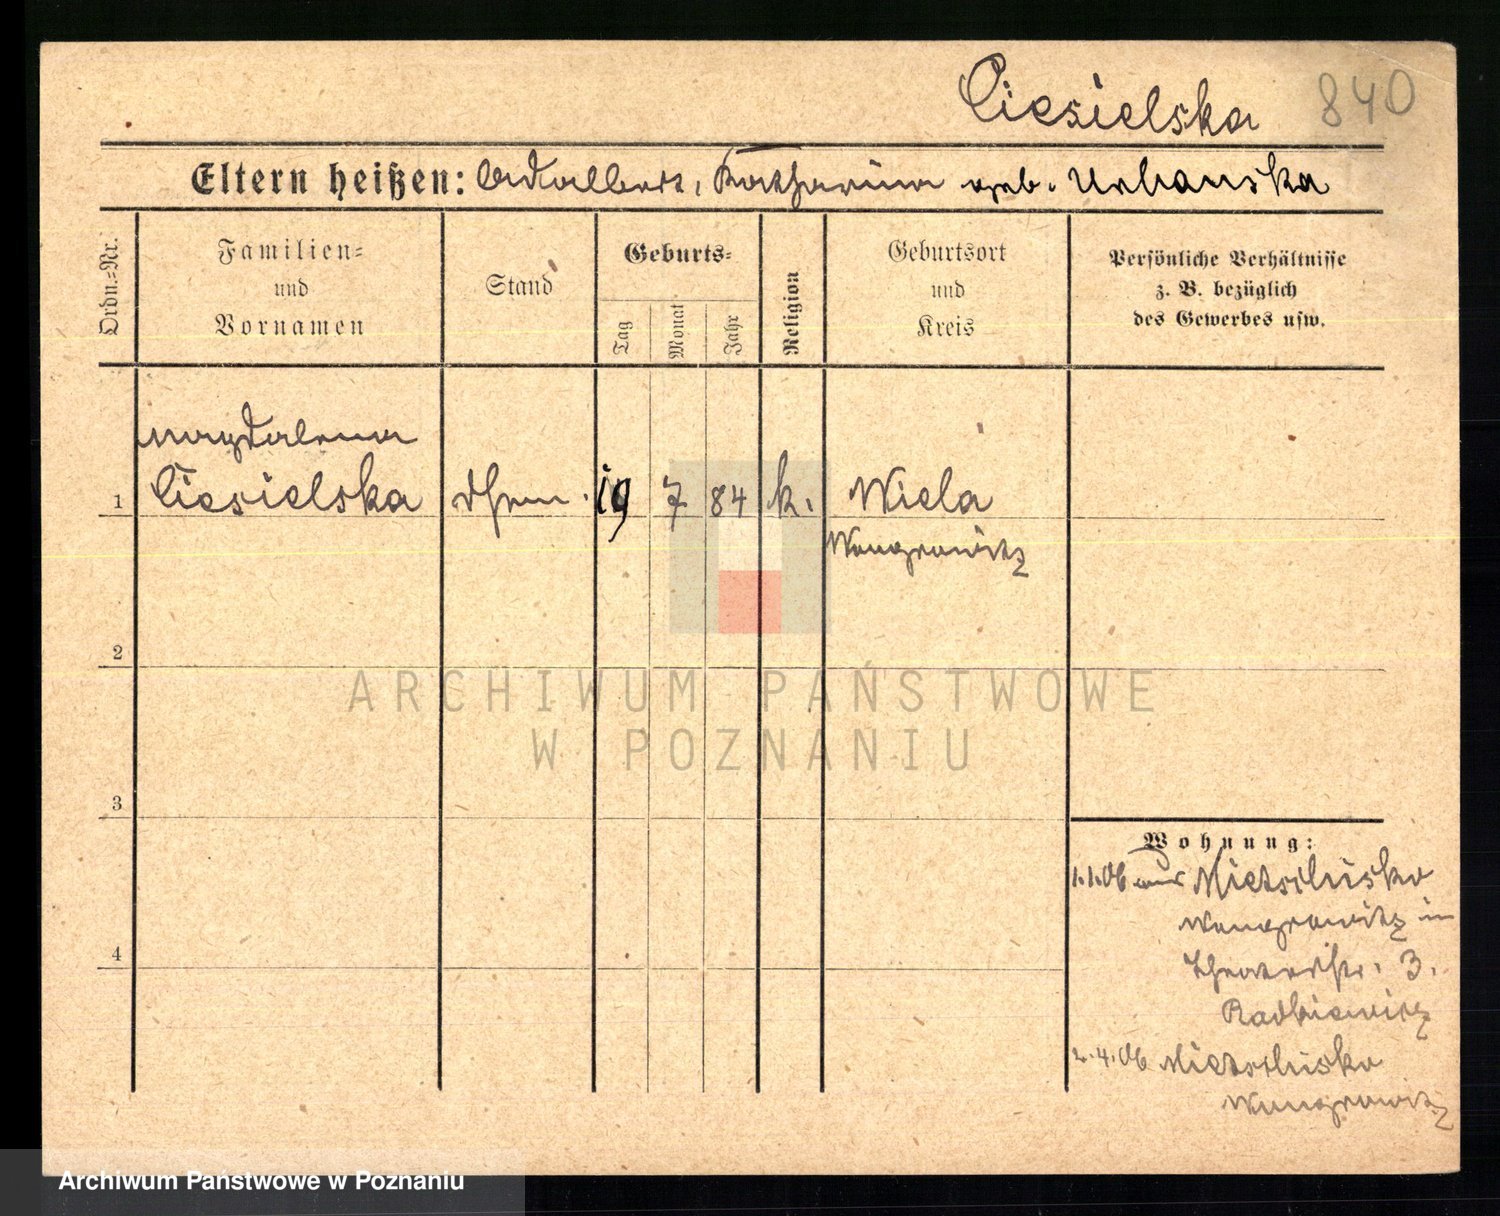 Ciesielska
840
Eltern heißen: Adalbert, Katharina geb. Urbanska
Ordn.=Nr.
Familien=
und
Vornamen
Stand
Geburts=
Tag
Monat
Jahr
Religion
Geburtsort
und
Kreis
Persönliche Verhältnisse
z. B. bezüglich
des Gewerbes usw.
Magdalena
1 Ciesielska 19 7 84 k. Wiela
Wongrowitz
2
ARCHIWUM PAŃSTWOWE
W POZNANIU
3
Wohnung:
1.1.06 aus Mietschisko
Wongrowitz in
4
Theaterstr. 3.
Radkiewicz
2.4.06 Mietschisko
Wongrowitz
Archiwum Państwowe w Poznaniu